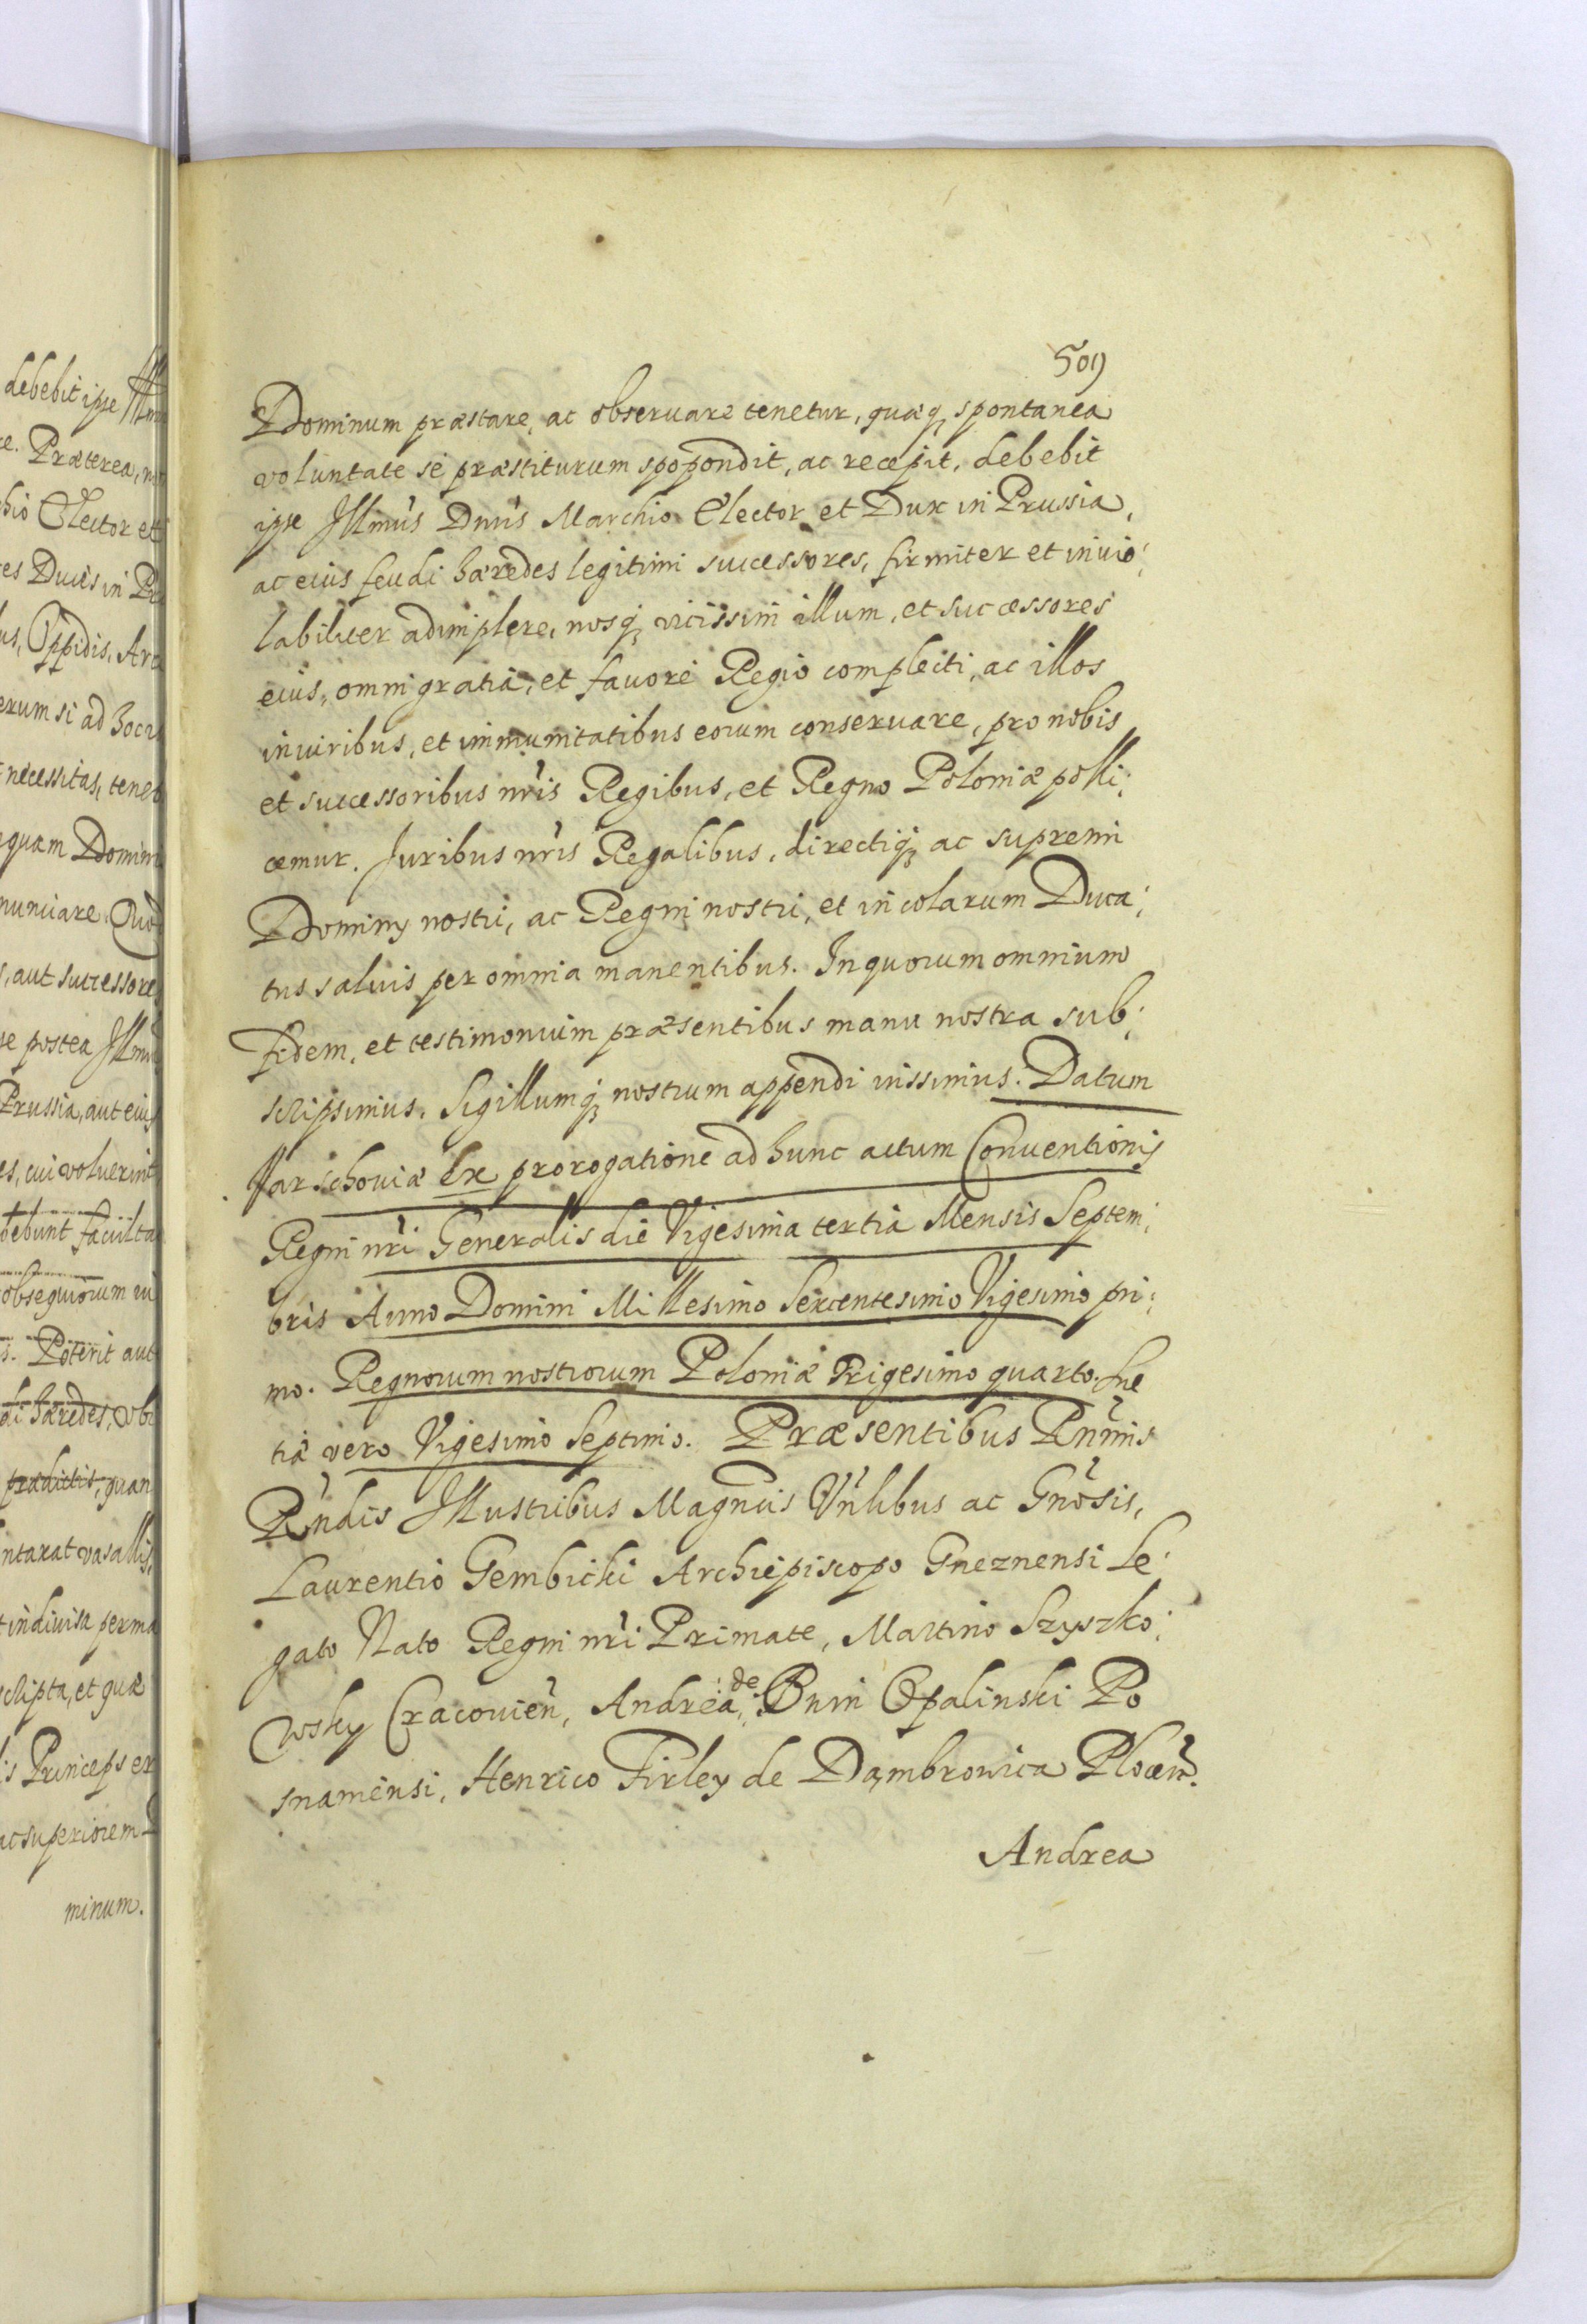 debebit ipse Illm
e. Præterea, n
hio Elector et
es Ducis in Pr
us, Oppidis, Arc
erum si ad hoc
necessitas, teneb
quam Domin
nunciare. Quo
, aut successore
se postea Illm
Prussia, aut eius
es, cui voluerint
debunt facult
obsequiorum
s. Poterit aut
di hæredes, ubi
prædictis, quan
ntaxat vasallis,
t indiuisa perma
scripta, et quæ
is Princeps et
ac superiorem
minum.
509
Dominum præstare, ac obseruare tenetur, quæq, spontanea
voluntate se præstiturum spopondit, ac recepit, debebit
ipse Illmus Dnus Marchio Elector et Dux in Prussia,
ac eius feudi hæredes legitimi successores, firmiter et inuio:
labiliter adimplere, nosq, vicissim illum, et successores
eius, omni gratia, et fauore Regio complecti, ac illos
in iuribus, et immunitatibus eorum conseruare, pro nobis
et successoribus nris Regibus, et Regno Poloniæ polli:
cemur. Juribus nris Regalibus, directiq, ac supremi
Dominy nostri, ac Regni nostri, et incolarum Duca:
tus saluis per omnia manentibus. In quorum omnium
fidem, et testimonium præsentibus manu nostra sub:
scripsimus. Sigillumq, nostrum appendi iussimus. Datum
Varschouiæ ex prorogatione ad hunc actum Conuentionis
Regni nri Generalis die Vigesima tertia Mensis Septem:
bris Anno Domini Millesimo Sexcentesimo Vigesimo pri:
mo. Regnorum nostrorum Poloniæ Trigesimo quarto. Sue
tiæ vero Vigesimo Septimo. Præsentibus Rnmis
Rndis Illustribus Magncis Vnlibus ac Gnosis,
Laurentio Gembicki Archiepiscopo Gneznensi Le:
gato Nato Regni nri Primate, Martino Szyszko:
wsky Cracouien, Andrea de Bnin Opalinski Po
snaniensi, Henrico Firley de Dambrowica Plocen.
Andrea